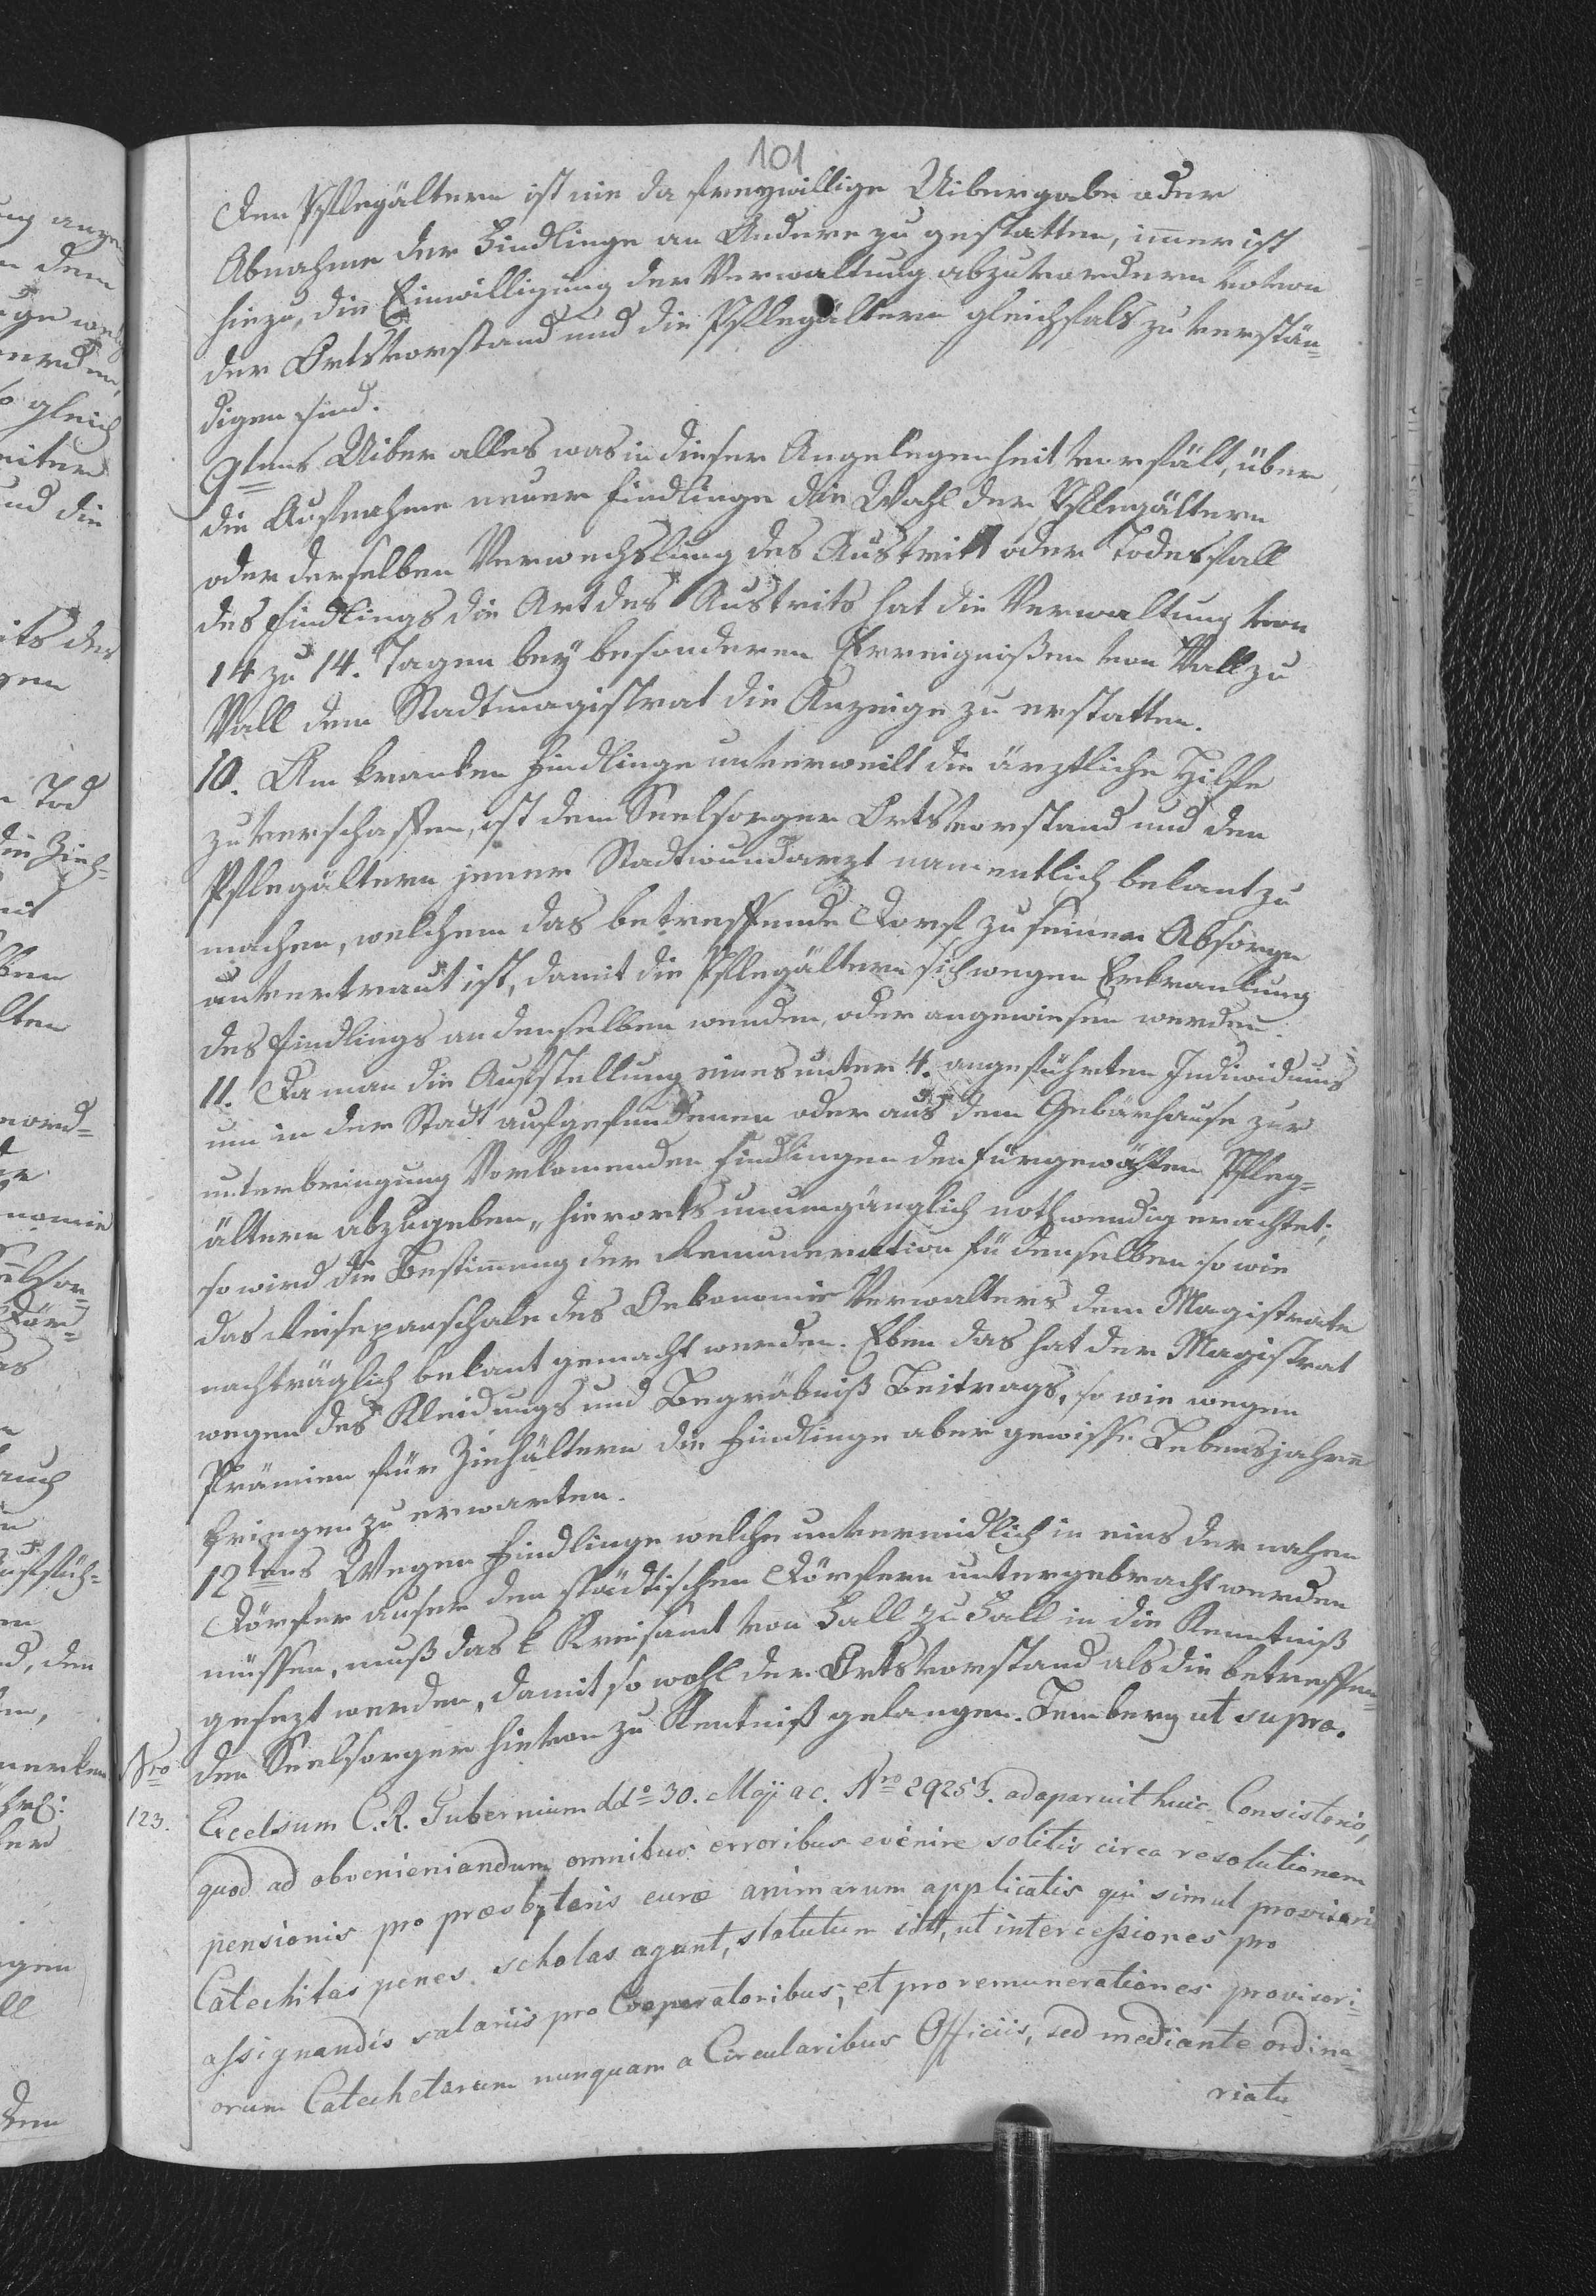 101
Den Pflegältern ist nie da freywillige Uibergabe oder
Abnahme der Findlinge an Andere zu gestatten, immer ist
hiezu, die Einwilligung der Verwaltung abzuvordern wovon
der Ortsvorstand und die Pflegältern gleichfals zu verstän=
digen sind.
9tens Uiber alles was in dieser Angelegenheit vorfält, über
die Aufnahme neuer Findlinge die Wahl der Pflegältern
oder derselben Verwechslung des Austritt oder Todesfall
des Findlings die Art des Austrits hat die Verwaltung von
14 zu 14. Tagen bey besonderen Erreignißen von Vall zu
Vall dem Stadtmagistrat die Anzeige zu erstatten.
10. Am kranken Findlinge unverweilt die ärztliche Hilfe
zu verschaffen, ist dem Seelsorger Ortsvorstand und den
Pflegältern jener Stadtwundarzt namentlich bekant zu
machen, welchem das betreffende Dorf zu seiner Absorge
anvertraut ist, damit die Pflegältern sich wegen Erkrankung
des Findlings an denselben wenden, oder angewiesen werden
11. Da man die Aufstellung eines unter 4. angeführten Individuums
um in der Stadt aufgefundenen oder aus dem Gebärhause zur
unterbringung Vorkomenden Findlingen den fürgewählten Pfleg=
ältern abzugeben, hierorts unumgänglich nothwendig erachtet;
so wird die Bestimmung der Remuneration für denselben so wie
das Reisepauschale des Oekonomie Verwalters dem Magistrate
nachträglich bekant gemacht werden. Eben das hat der Magistrat
wegen des Kleidungs und Begräbniß Beitrags, so wie wegen
Prämien für Ziehältern die Findlinge aber gewisse Lebensjahre
bringen zu erwarten.
12tens Wegen Findlinge welche unvermeidlich in eins der nahen
Dörfer auser den städtischen Dörfern untergebracht werden
müssen, muß das k Kreisamt von Fall zu Fall in die Kenntniß
gesezt werden, damit so wohl der Ortsvorstand als die betreffen=
den Seelsorger hievon zu Kentniß gelangen. Lemberg ut supra.
Nro
123.
Excelsum C. R. Gubernium ddo 30. Maji a c. Nro 29253. adaparuit huic Consistorio,
quod ad obvenieniandum omnibus erroribus evenire solitis circa resolutionem
pensionis pro præsbyteris curæ animarum applicatis qui simul provisorie
Catechitas penes scholas agunt, statutum sitt, ut intercessiones pro
assignandis salariis pro Cooperatoribus, et pro remunerationes provisori=
orum Catechetarum nunquam a Circularibus Officiis, sed mediante ordina=
riatu